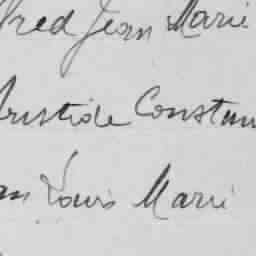 fred Jean Marie
Aristide Constan
an Louis Marie